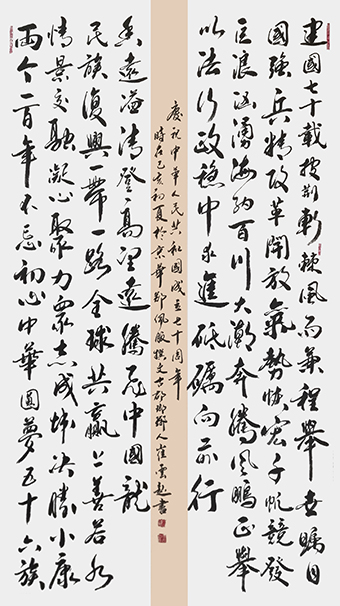 建國七十載披荊斬棘風雨兼程舉世矚目
國強兵精改革開放氣勢恢宏千帆競發
巨浪洶湧海納百川大潮奔騰風鵬正舉
以法行政穩中求進砥礪向前行
慶祝中華人民共和國成立七十周年
時在己亥初夏於京華
兩个一百年不忘初心中華圓夢五十六族
情景交融凝心聚力眾志成城決勝小康
民族復興一帶一路全球共贏上善若水
香遠溢清登高望遠騰飛中國龍